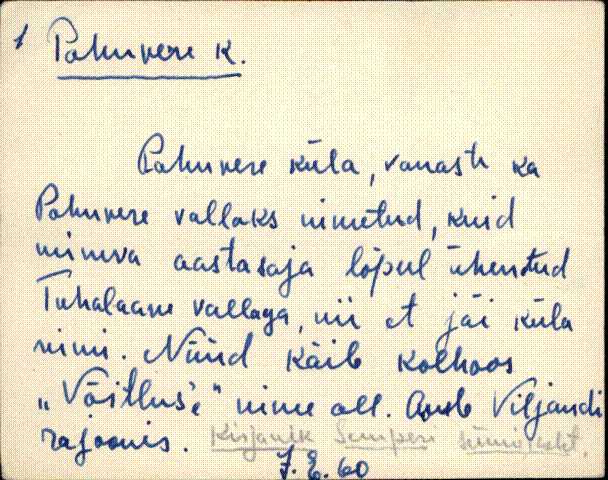 1 Pahuvere k.
Pahuvere küla, vanasti ka
Pahuvere vallaks nimetud, kuid
mineva aastasaja lõpul ühentud
Tuhalaane vallaga, nii et jäi küla
nimi. Nüüd käib kolhoos
„Võitluse" nime all. Asub Viljandi
rajoonis. Kirjanik Semperi sünnikoht.
J. E. 60